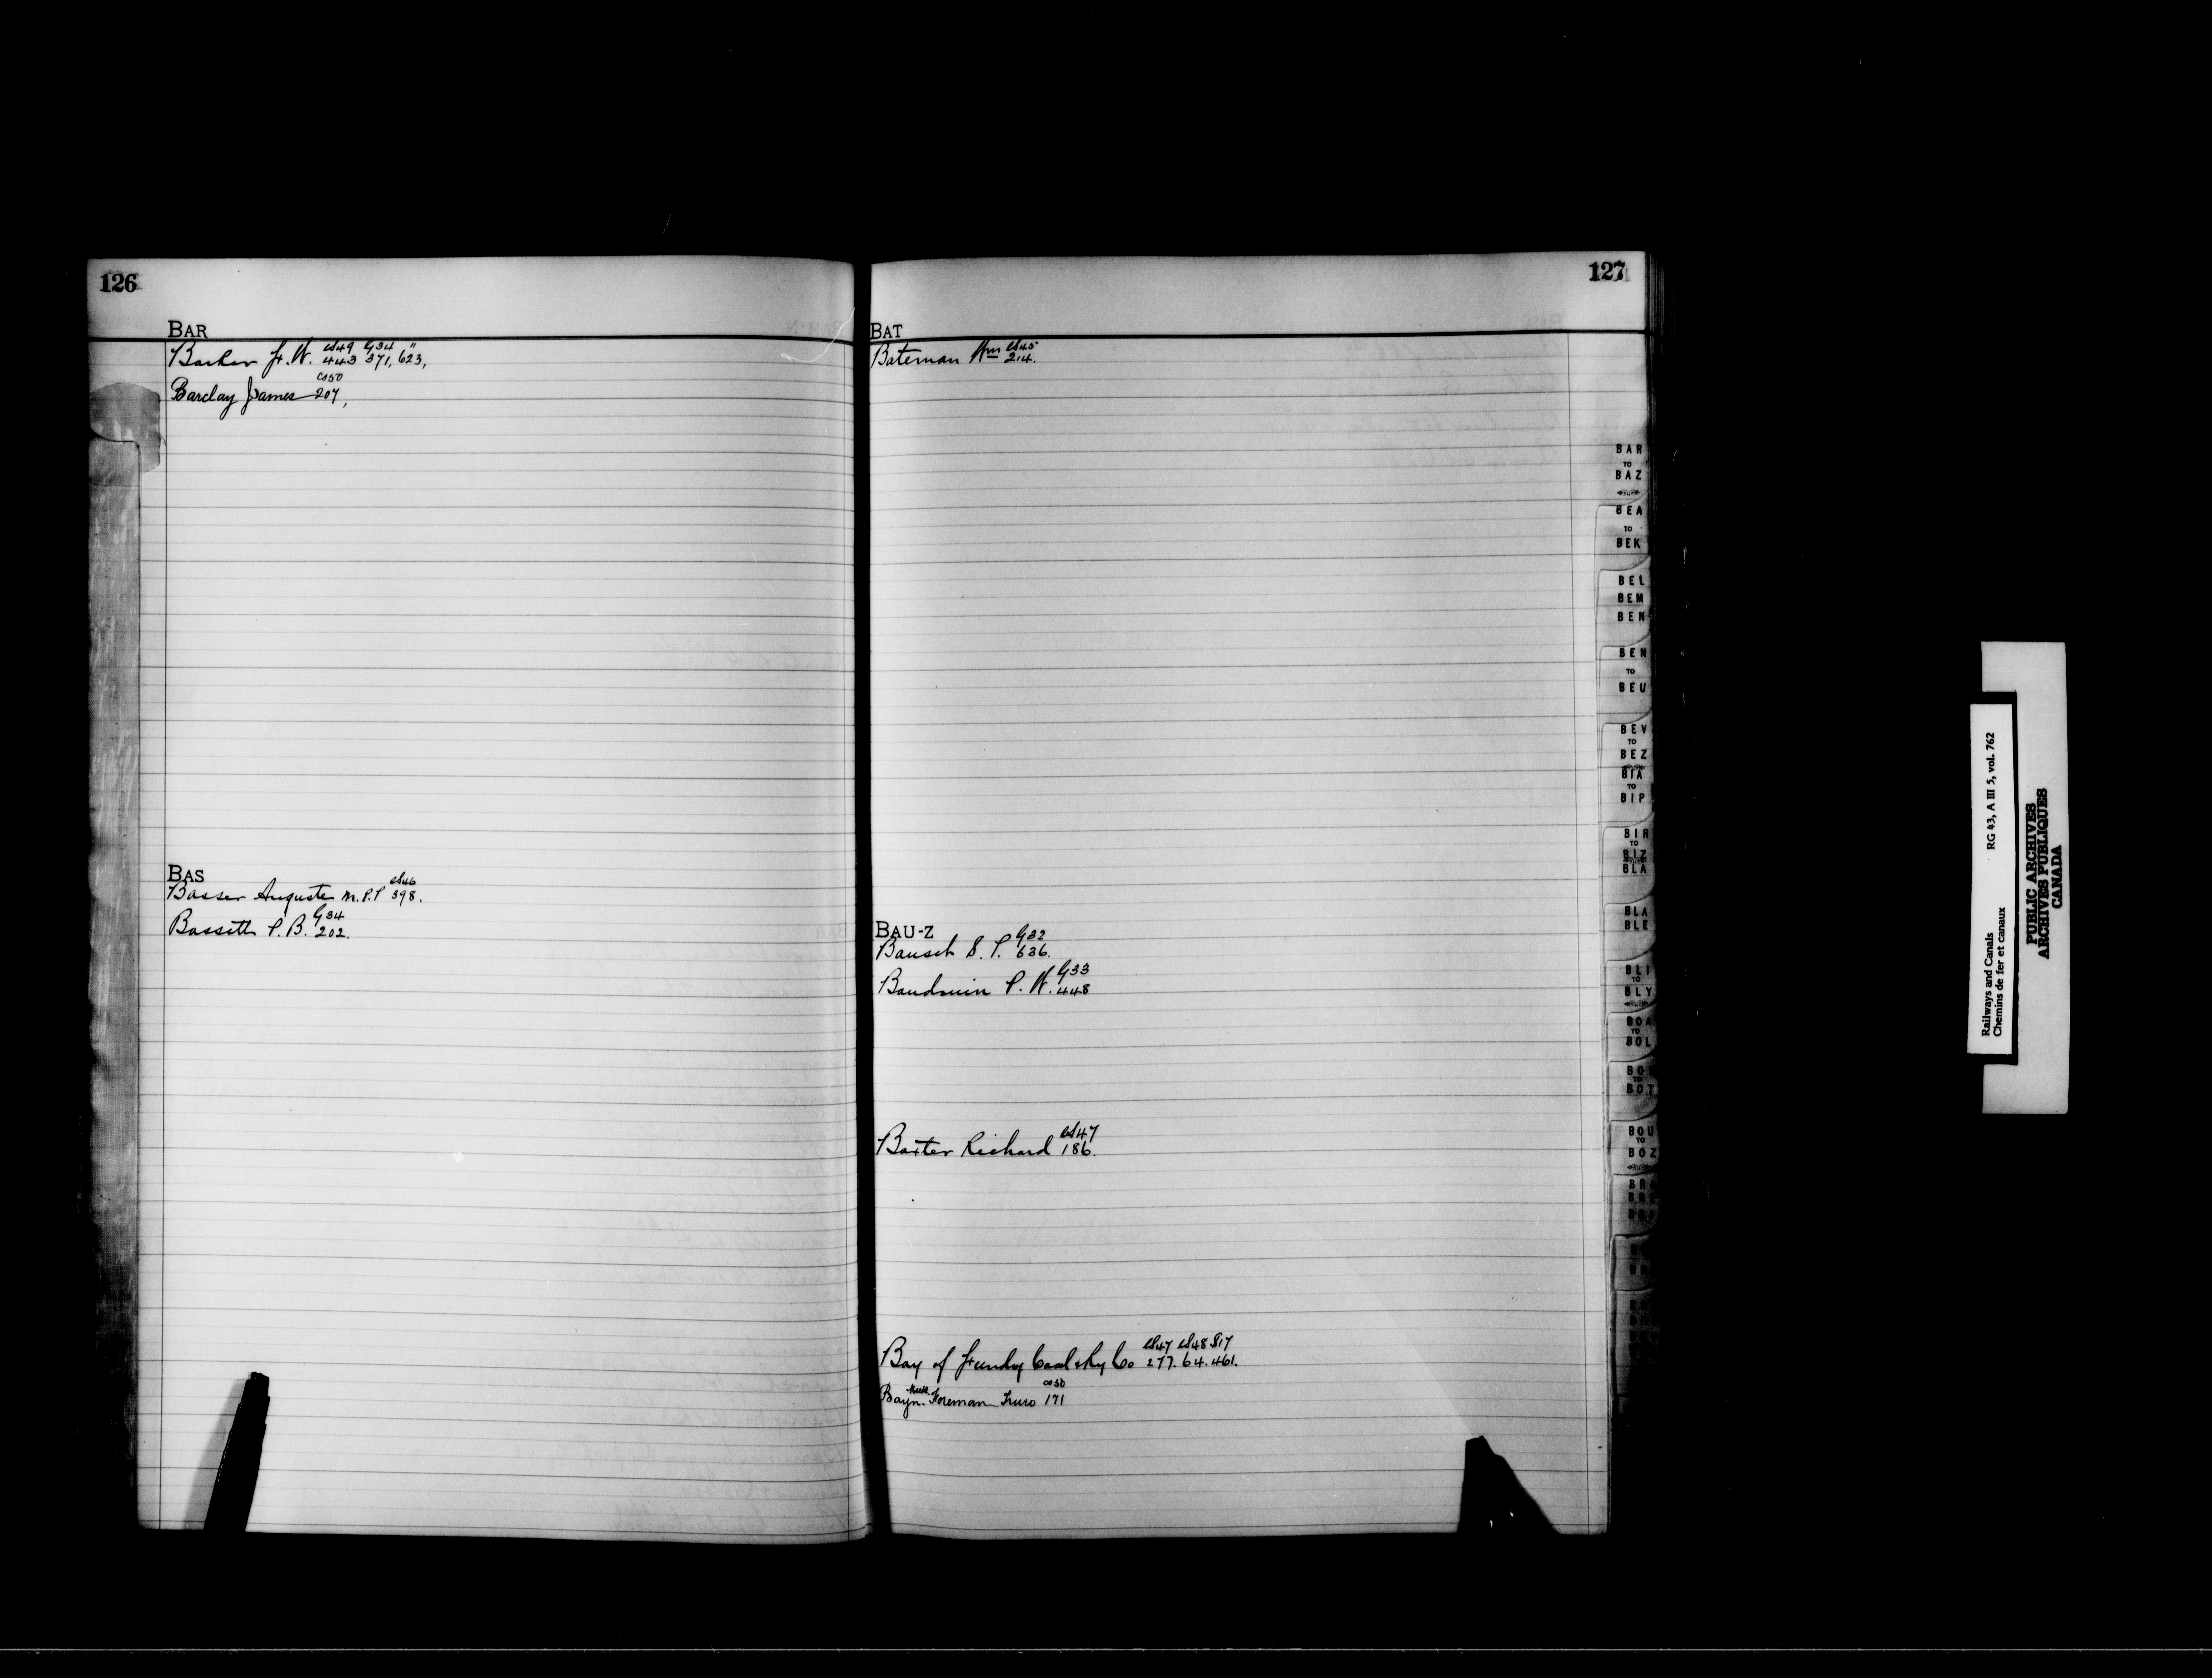 126
BAR
CS49 G34 "
Barker F. W. 443 371, 623,
CS50
Barclay James 207,
BAS
CS46
Basser Auguste M.P.P 398.
G34
Bassett P. B. 202.
127
BAT
CS45
Bateman Wm 214.
BAU-Z
G32
Bausch S. P. 636.
G33
Baudouin P. W. 448
CS47
Baxter Richard 186.
CS47 CS48 S17
Bay of Fundy Coal & Ry Co 277. 64. 461.
CS50
Bayn. Foreman Truro 171
BAR
TO
BAZ
BEA
TO
BEK
BEL
BEM
BEN
BEN
TO
BEU
BEV
TO
BEZ
BIA
TO
BIP
BIR
TO
BIZ
BLA
BLA
BLE
BLI
TO
BLY
BOA
TO
BOL
TO
BOT
BOU
TO
BOZ
Railways and Canals RG 43, A III 5, vol. 762
Chemins de fer et canaux
PUBLIC ARCHIVES
ARCHIVES PUBLIQUES
CANADA